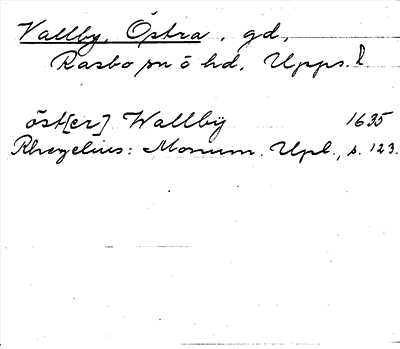 Vallby, Östra, gd,
Rasbo sn o hd, Upps. l.
öst[er] Wallbÿ 1635
Rhezelius: Monum. Upl., s. 123.